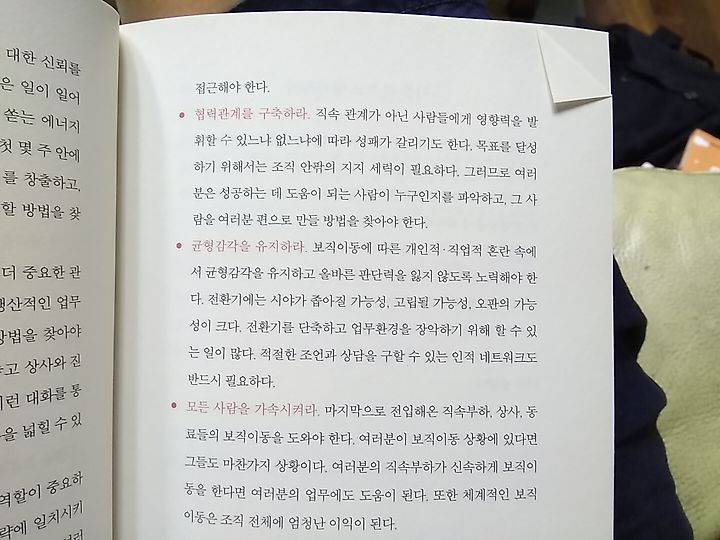 대한 신뢰를
은 일이 일어
쏟는 에너지
첫 몇 주 안에
를 창출하고,
할 방법을 찾
더 중요한 관
생산적인 업무
방법을 찾아야
고 상사와 진
이런 대화를 통
을 넓힐 수 있
역할이 중요하
략에 일치시키
접근해야 한다.
• 협력관계를 구축하라. 직속 관계가 아닌 사람들에게 영향력을 발
휘할 수 있느냐 없느냐에 따라 성패가 갈리기도 한다. 목표를 달성
하기 위해서는 조직 안팎의 지지 세력이 필요하다. 그러므로 여러
분은 성공하는 데 도움이 되는 사람이 누구인지를 파악하고, 그 사
람을 여러분 편으로 만들 방법을 찾아야 한다.
• 균형감각을 유지하라. 보직이동에 따른 개인적·직업적 혼란 속에
서 균형감각을 유지하고 올바른 판단력을 잃지 않도록 노력해야 한
다. 전환기에는 시야가 좁아질 가능성, 고립될 가능성, 오판의 가능
성이 크다. 전환기를 단축하고 업무환경을 장악하기 위해 할 수 있
는 일이 많다. 적절한 조언과 상담을 구할 수 있는 인적 네트워크도
반드시 필요하다.
• 모든 사람을 가속시켜라. 마지막으로 전입해온 직속부하, 상사, 동
료들의 보직이동을 도와야 한다. 여러분이 보직이동 상황에 있다면
그들도 마찬가지 상황이다. 여러분의 직속부하가 신속하게 보직이
동을 한다면 여러분의 업무에도 도움이 된다. 또한 체계적인 보직
이동은 조직 전체에 엄청난 이익이 된다.